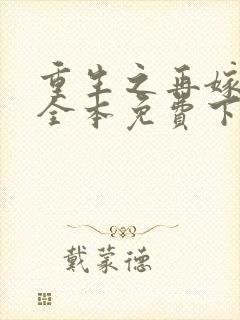 重生之再嫁
全本免费下
戴蒙德